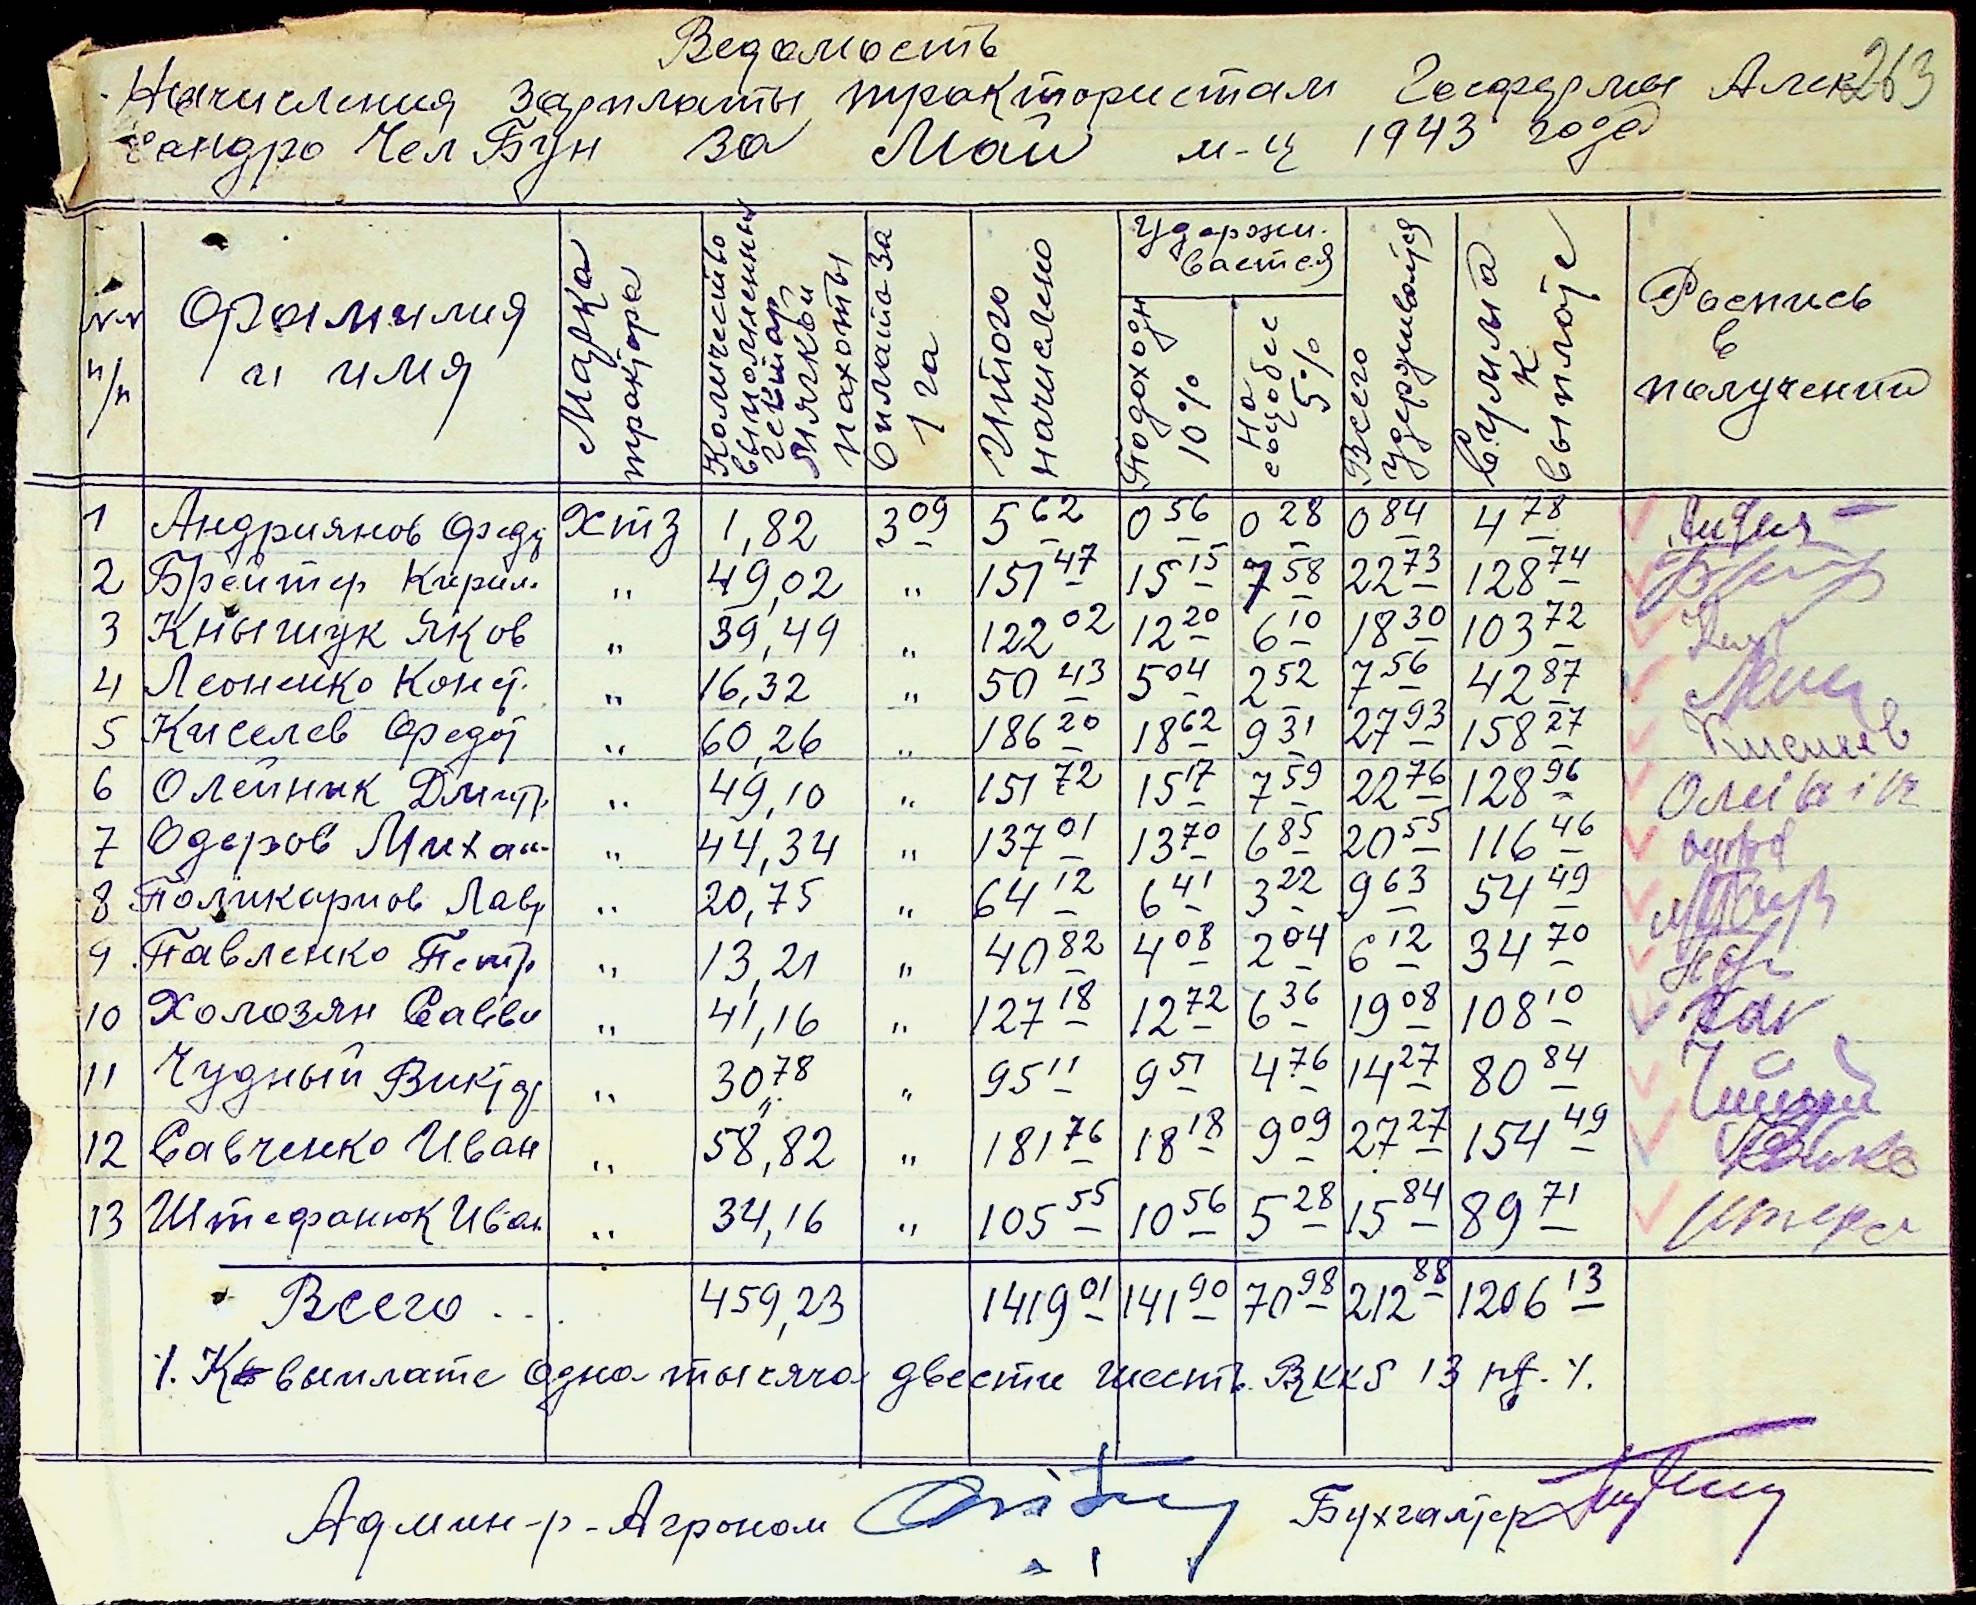 Ведомость
Начисления зарплаты трактористам Госфермы Алек 263
сандро Чел Бун за Май м-ц 1943 года
№№ п/п Фамилия и имя Марка трактора Количество выполненных гектар мягкой пахоты Оплата за 1 га Итого начислено Удержи-вается Подоходн 10% На соцобес 5% Всего удерживается Сумма к выплате Роспись в получении
1 Андриянов Федр ХТЗ 1,82 3 09 5 62 0 56 0 28 0 84 4 78
2 Брейтер Кирил. " 49,02 " 151 47 15 15 7 58 22 73 128 74
3 Кнышук Яков " 39,49 " 122 02 12 20 6 10 18 30 103 72
4 Леоненко Конст. " 16,32 " 50 43 5 04 2 52 7 56 42 87
5 Киселев Федот " 60,26 " 186 20 18 62 9 31 27 93 158 27 Киселев
6 Олейник Дмитр. " 49,10 " 151 72 15 17 7 59 22 76 128 96
7 Одеров Михаи- " 44,34 " 137 01 13 70 6 85 20 55 116 46
8 Поликарпов Лавр " 20,75 " 64 12 6 41 3 22 9 63 54 49
9 Павленко Петр " 13,21 " 40 82 4 08 2 04 6 12 34 70
10 Холозян Савви " 41,16 " 127 18 12 72 6 36 19 08 108 10
11 Чудный Виктор " 30,78 " 95 11 9 51 4 76 14 27 80 84
12 Савченко Иван " 58,82 " 181 76 18 18 9 09 27 27 154 49
13 Штефанюк Иван " 34,16 " 105 55 10 56 5 28 15 84 89 71
Всего ... 459,23 1419 01 141 90 70 98 212 88 1206 13
/. К выплате одна тысяча двести шесть RKKS 13 pf. /.
Админ-р-Агроном Бухгалтер